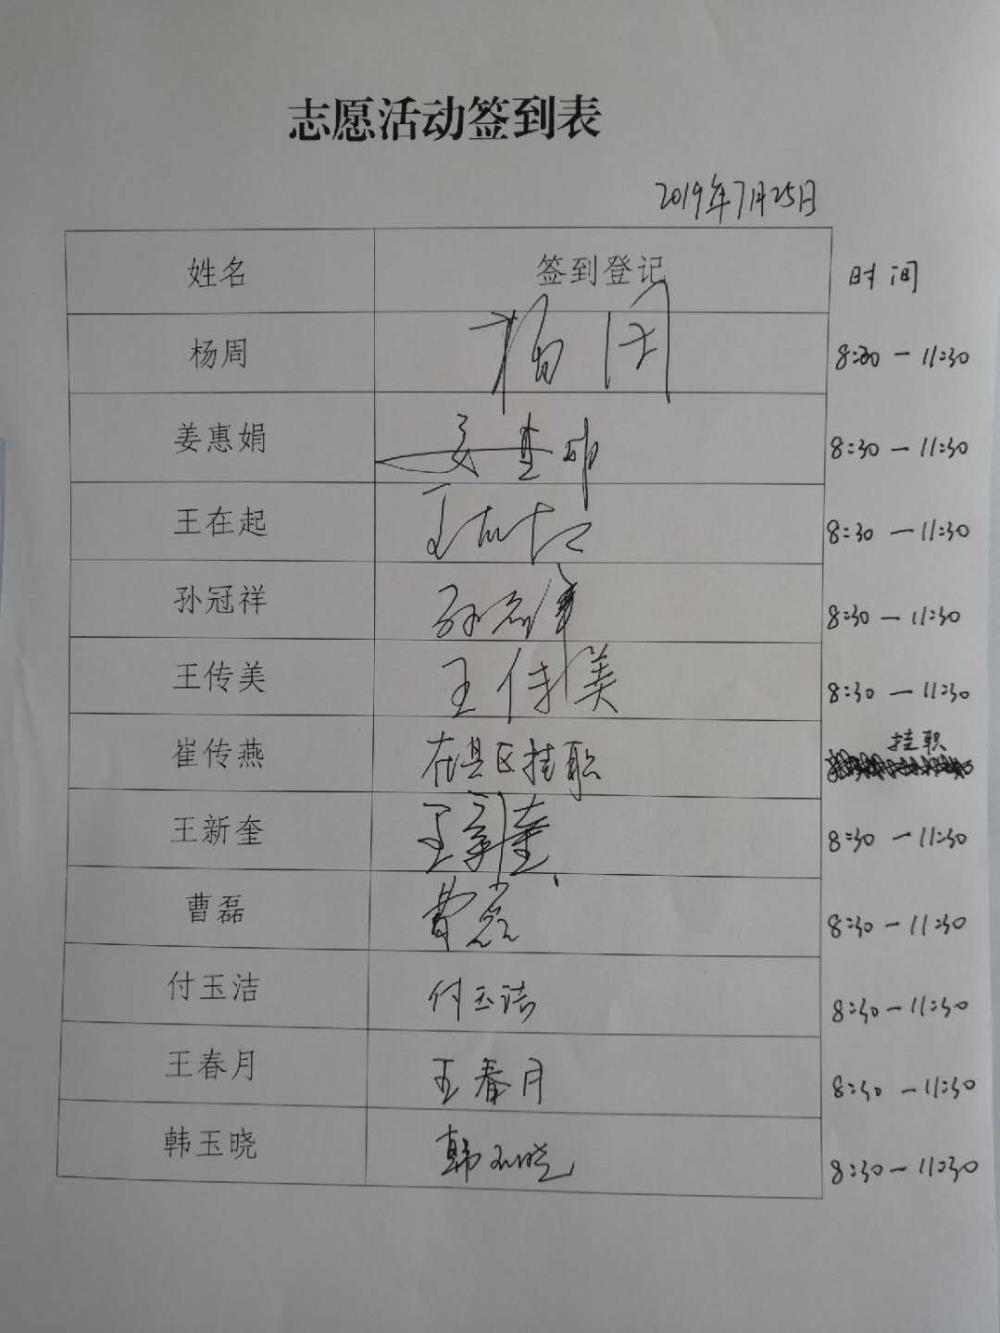 志愿活动签到表
2019年7月25日
姓名 签到登记 时间
杨周 杨周 8:30-11:30
姜惠娟 姜惠娟 8:30-11:30
王在起 王在起 8:30-11:30
孙冠祥 孙冠祥 8:30-11:30
王传美 王传美 8:30-11:30
崔传燕 在县区挂职 挂职
王新奎 王新奎 8:30-11:30
曹磊 曹磊 8:30-11:30
付玉洁 付玉洁 8:30-11:30
王春月 王春月 8:30-11:30
韩玉晓 韩玉晓 8:30-11:30